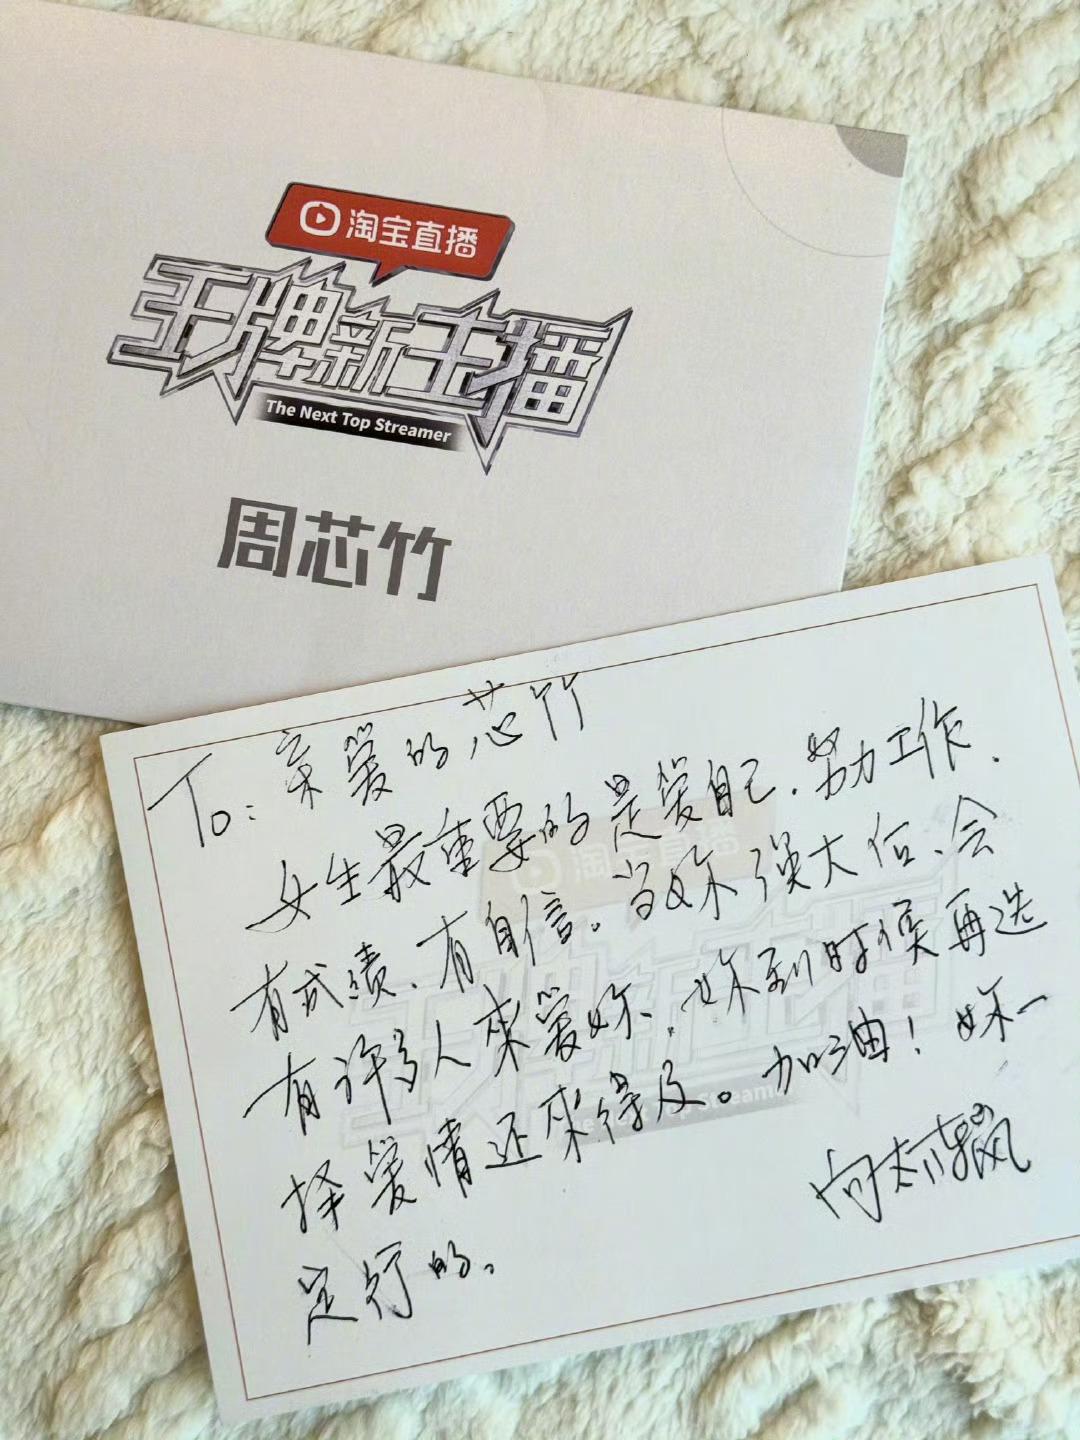 淘宝直播
王牌新主播
The Next Top Streamer
周芯竹
To: 亲爱的芯竹
女生最重要的是爱自己，努力工作、
有成绩、有自信。当妳强大后、会
有许多人来爱妳，妳到时候再选
择爱情还来得及。加油！妳一
定行的。
向太陈岚
淘宝直播
王牌新主播
The Next Top Streamer